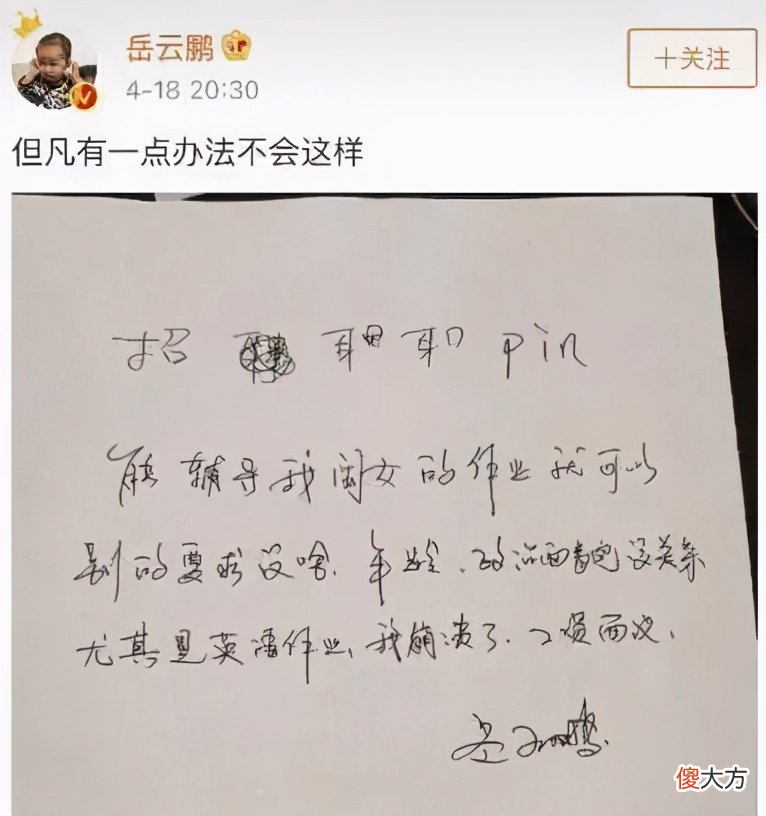 岳云鹏
4-18 20:30
+关注
但凡有一点办法不会这样
招 pin
能辅导我闺女的作业就可以
别的要求没啥、年龄、政治面貌没关系
尤其是英语作业、我崩溃了、工资面议、
岳云鹏
傻大方